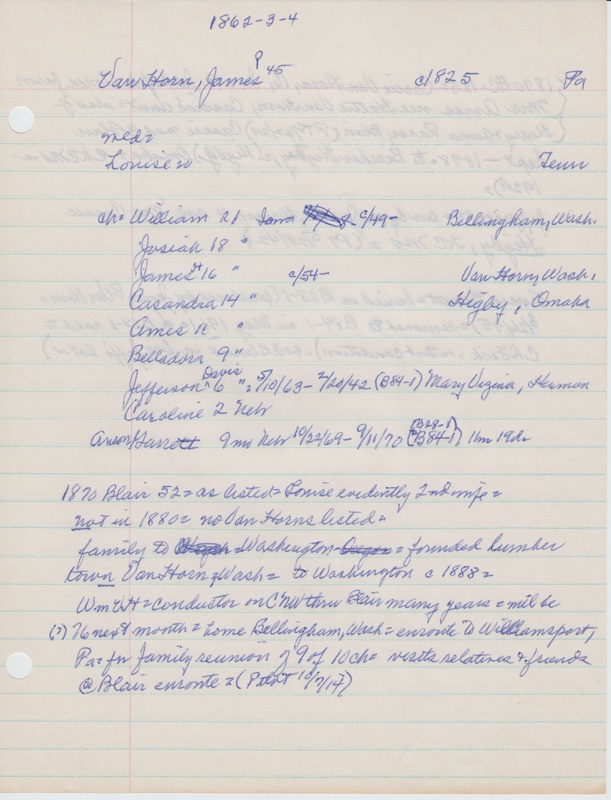 1862-3-4
Van Horn, James P 45 c/1825 Pa
med=
Louise 20 Tenn
ch= William 21 Iowa c/49- Bellingham, Wash.
Josiah 18 "
James 16 " c/54- Van Horn, Wash.
Casandra 14 " Higby, Omaha
Ames 11 "
Belladora 9 "
Jefferson Davis 6 "= 5/10/63- 2/20/42 (B84-1) Mary Virginia, Herman
Caroline 2 Nebr
Anson/Garrett 9 mo Nebr 10/22/69- 9/11/70 (B28-1) (B84-1) 11m 19da
1870 Blair 52= as listed= Louise evidently 2nd wife=
not in 1880= no Van Horns listed=
family to Washington- = founded lumber
town Van Horn, Wash= to Washington c 1888=
Wm VH= conductor on CNW thru Blair many years= will be
(?) 76 next month= home Bellingham, Wash= enroute to Williamsport,
Pa= for family reunion of 9 of 10 ch= visits relatives & friends
@ Blair enroute= (Pilot 10/7/14)